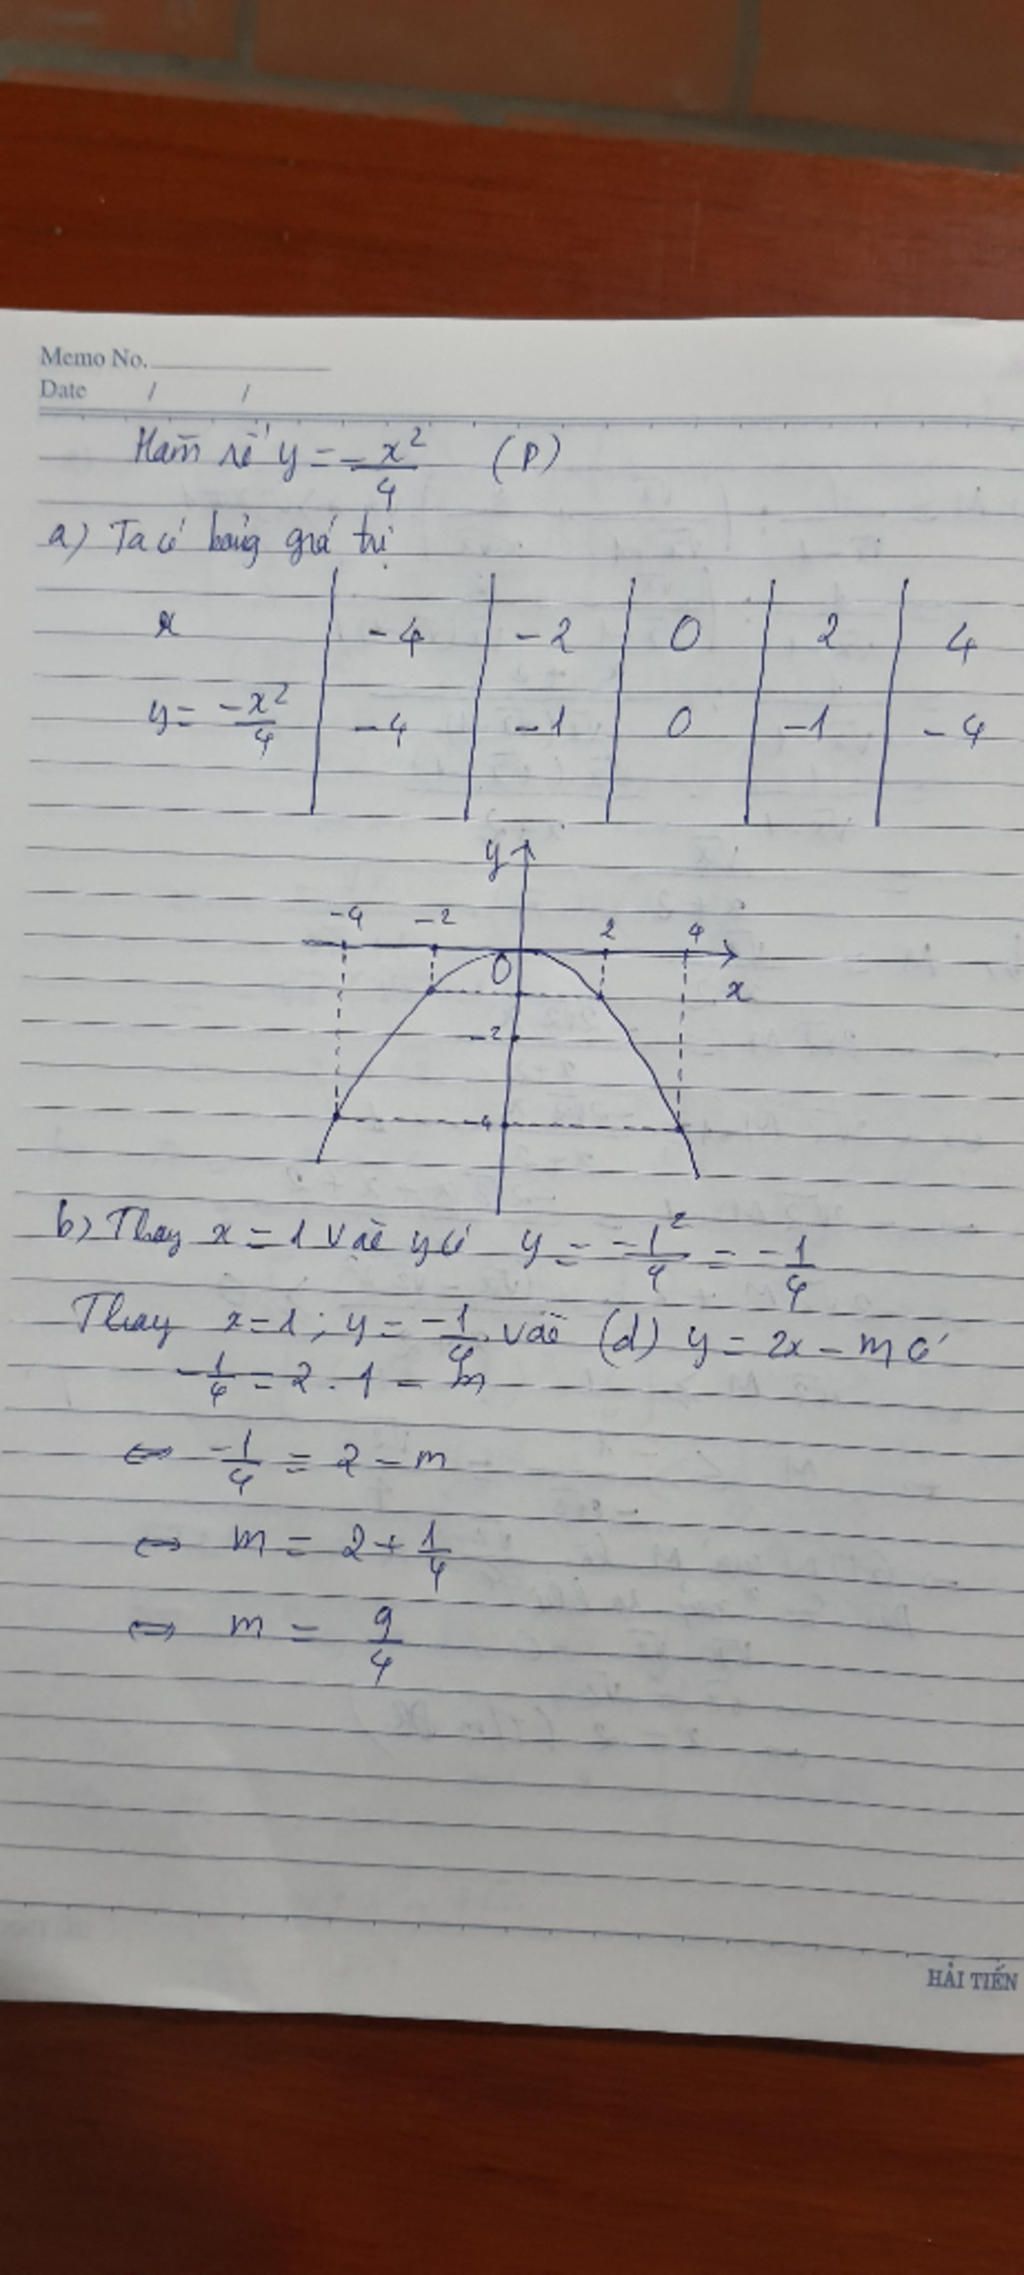 Memo No.
Date / /
Hàm số y = -x²/4 (P)
a) Ta có bảng giá trị
x -4 -2 0 2 4
y = -x²/4 -4 -1 0 -1 -4
y
-4 -2 2 4
O x
-2
-4
b) Thay x = 1 vào y có y = -1²/4 = -1/4
Thay x = 1 ; y = -1/4 vào (d) y = 2x - m có
-1/4 = 2 . 1 - m
⇔ -1/4 = 2 - m
⇔ m = 2 + 1/4
⇔ m = 9/4
HẢI TIẾN